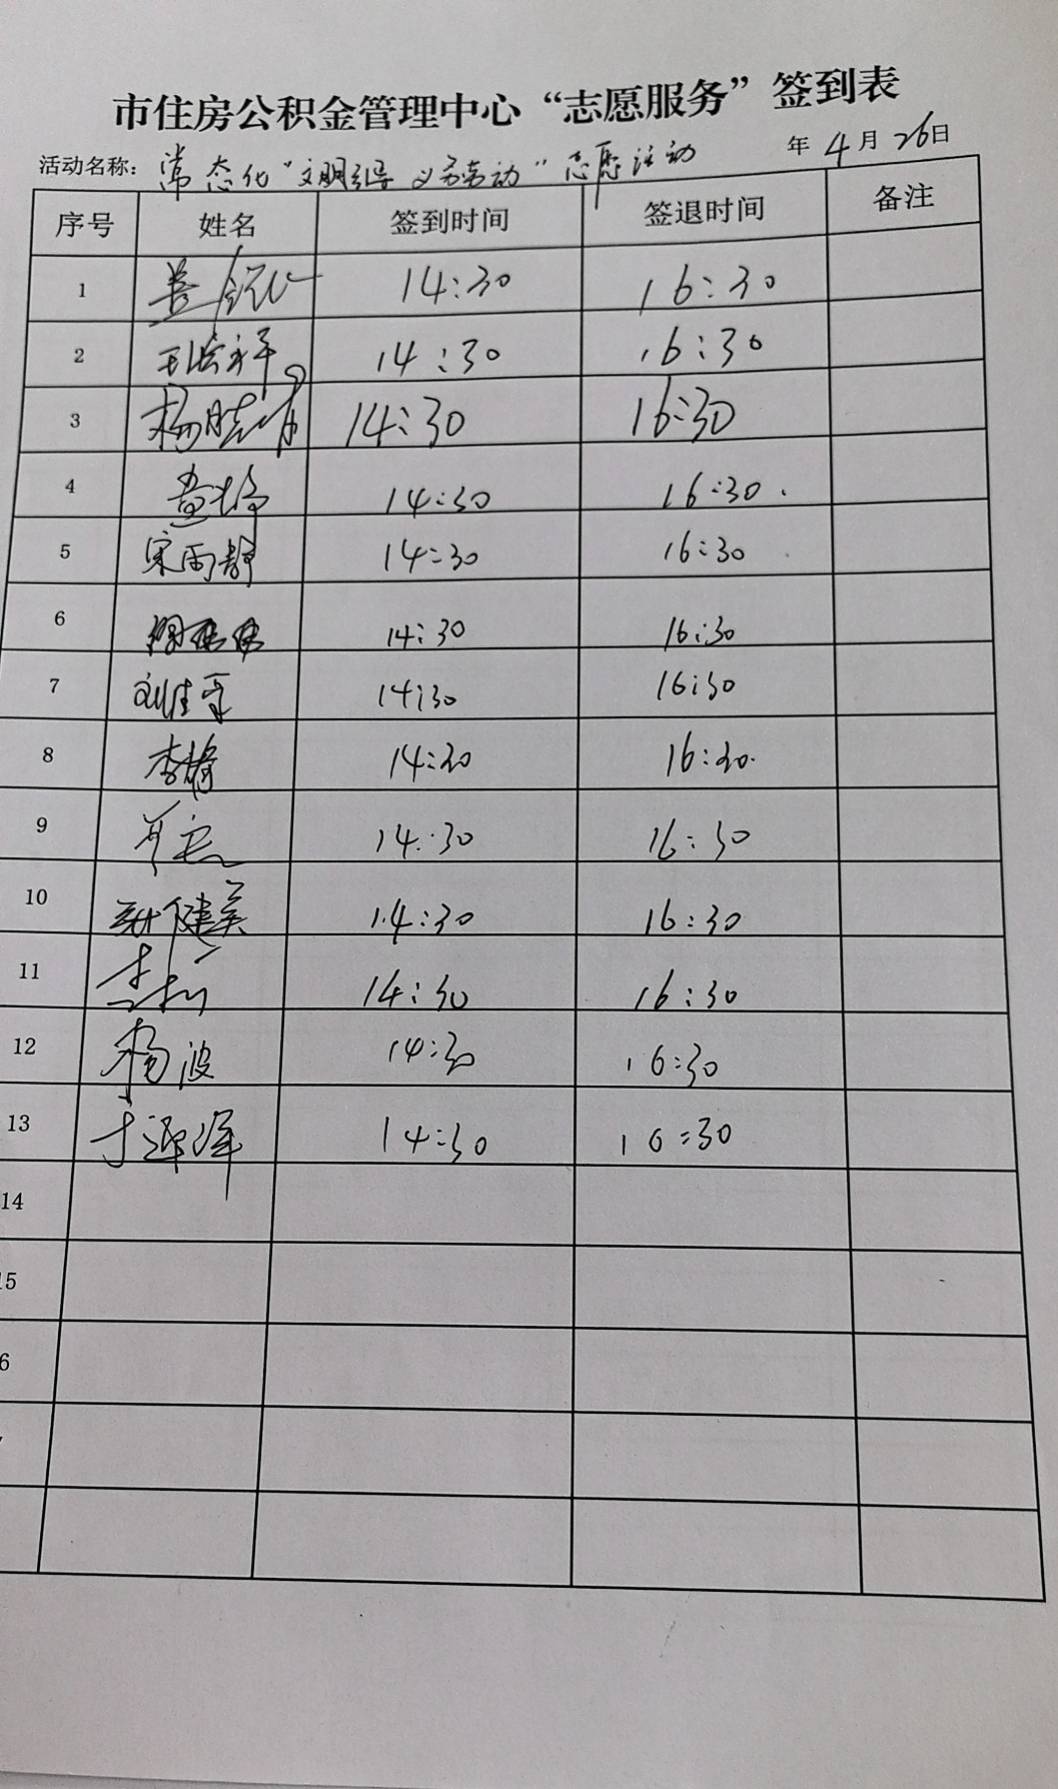 市住房公积金管理中心“志愿服务”签到表
活动名称：常态化“文明引导 义务劳动”志愿活动 年4月26日
序号 姓名 签到时间 签退时间 备注
1 14:30 16:30
2 14:30 16:30
3 杨晓 14:30 16:30
4 14:30 16:30.
5 宋雨静 14:30 16:30
6 14:30 16:30
7 刘佳 14:30 16:30
8 李婧 14:30 16:30.
9 14:30 16:30
10 健美 14:30 16:30
11 14:30 16:30
12 杨波 14:30 16:30
13 14:30 16:30
14
15
6